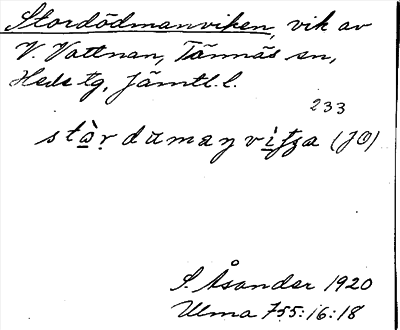 Stordödmanviken, vik av
V. Vattnan, Tännäs sn,
Heds tg, Jämtl. l.
233
(JÖ)
S. Åsander 1920
Ulma 755:16:18